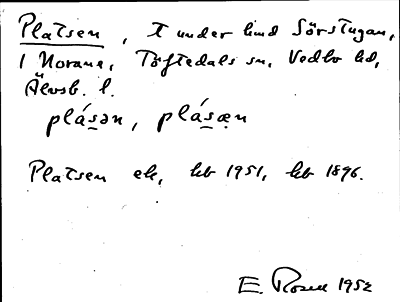 Platsen, t under hmd Sörstugan,
1 Norane, Töftedals sn, Vedbo hd,
Älvsb. l.
plásən, plásæn
Platsen ek, kb 1951, kb 1896.
E. Rosell 1952